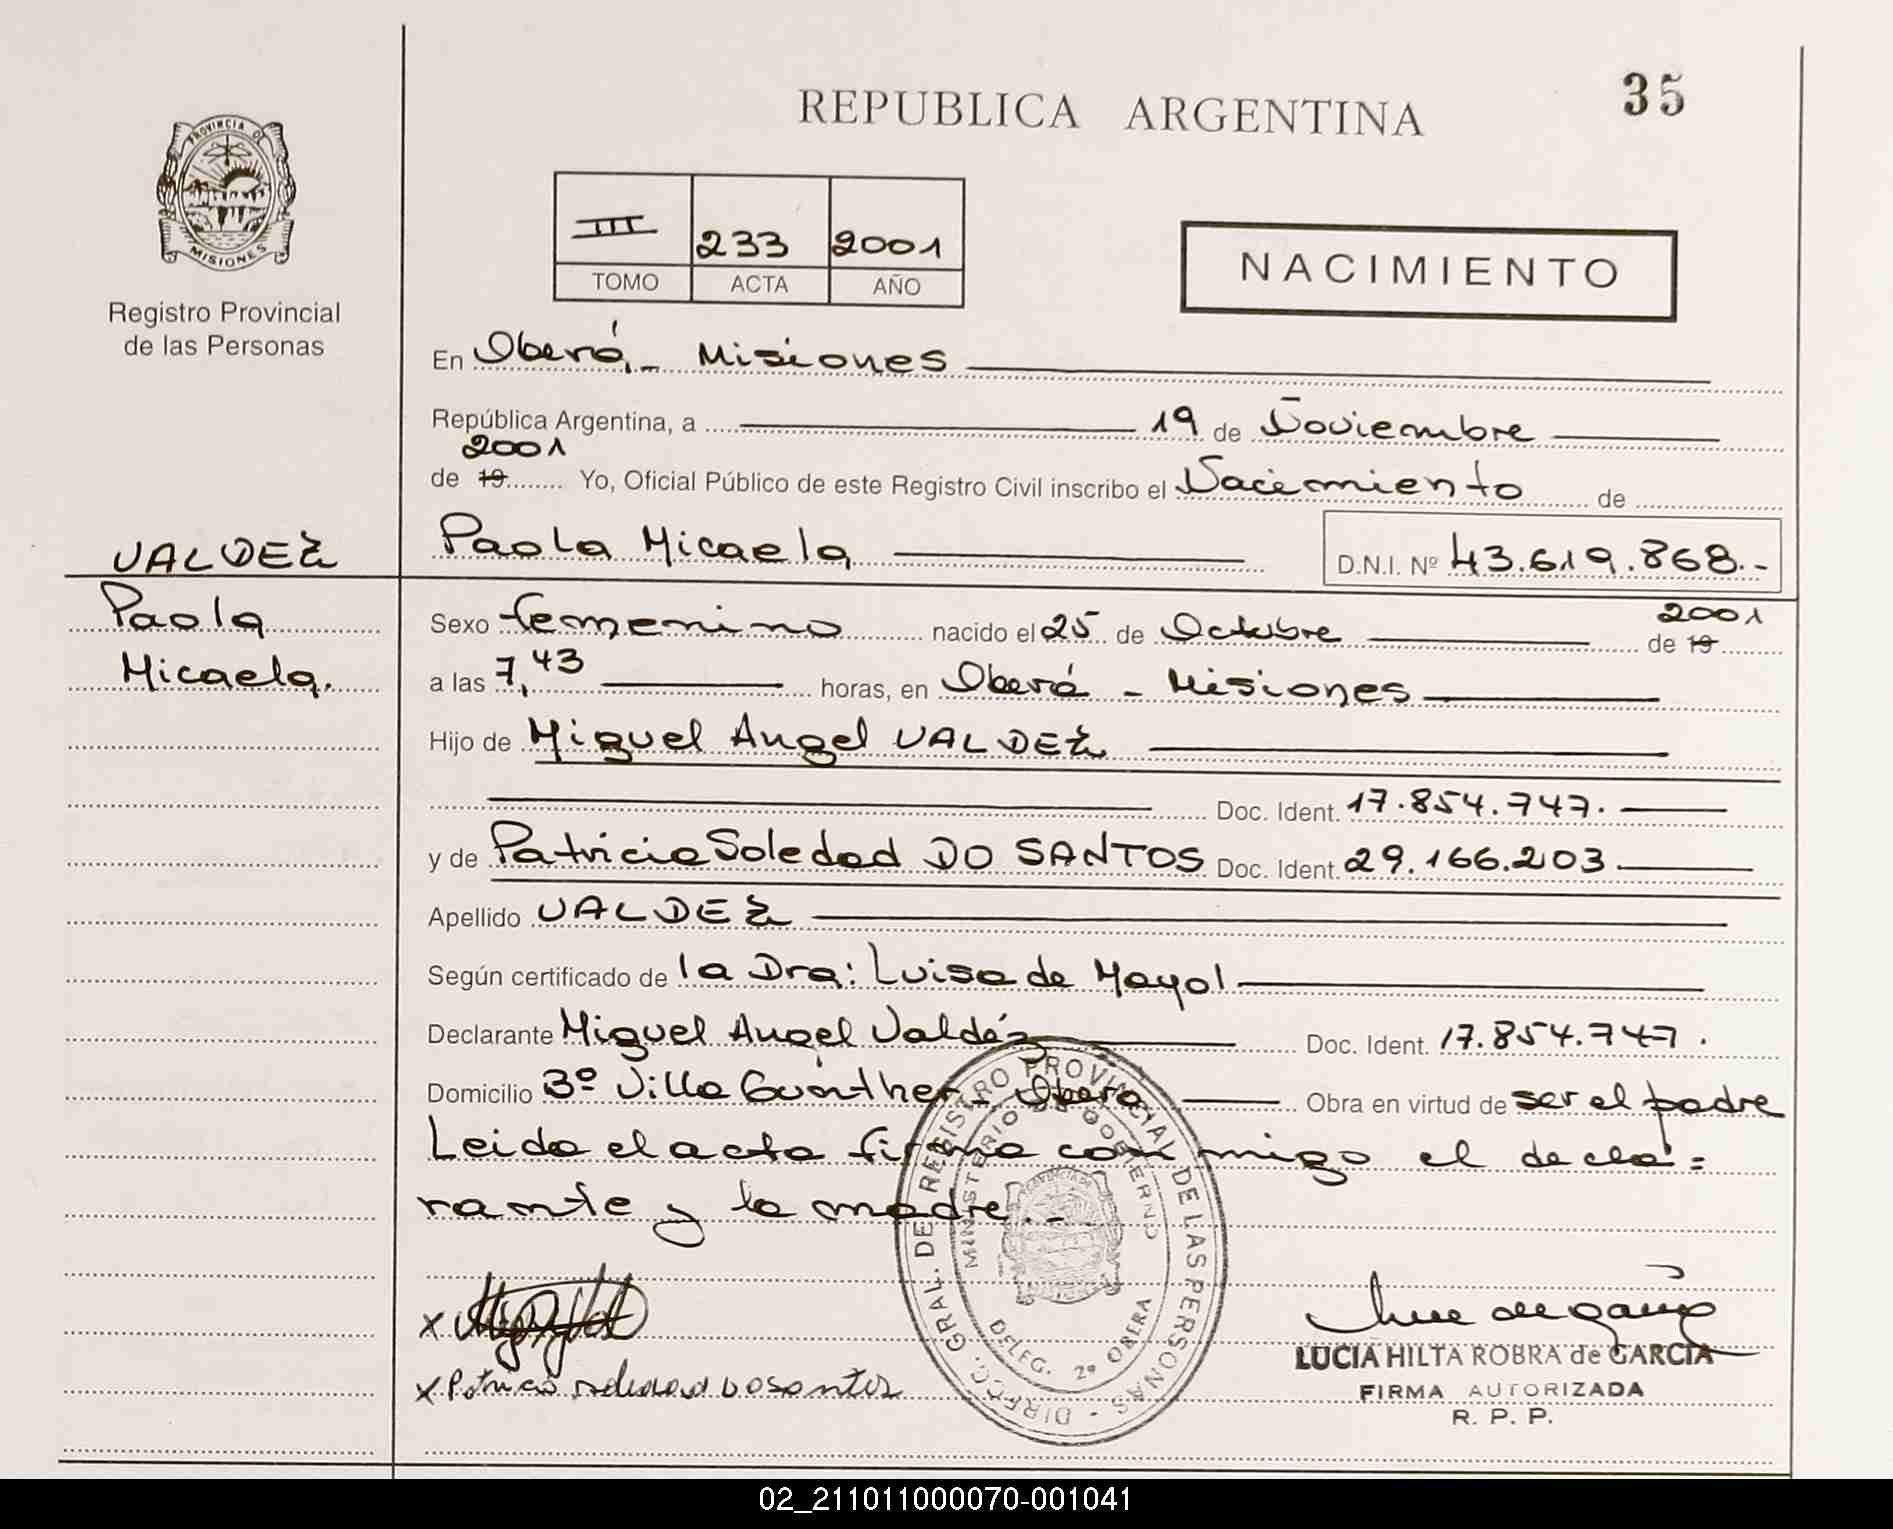 35
REPUBLICA ARGENTINA
PROVINCIA DE
MISIONES
Registro Provincial
de las Personas
III 233 2001
TOMO ACTA AÑO
NACIMIENTO
En Oberá,- Misiones
República Argentina, a 19 de Noviembre
2001
de 19 Yo, Oficial Público de este Registro Civil inscribo el Nacimiento de
VALDEZ
Paola Micaela D.N.I. Nº 43.619.868.-
Paola
Micaela.
2001
Sexo femenino nacido el 25 de Octubre de 19
a las 7,43 horas, en Oberá - Misiones
Hijo de Miguel Angel VALDEZ
Doc. Ident. 17.854.747.
y de Patricia Soledad DO SANTOS Doc. Ident. 29.166.203
Apellido VALDEZ
Según certificado de la Dra: Luisa de Mayol
Declarante Miguel Angel Valdéz Doc. Ident. 17.854.747.
Domicilio 3º Villa Günther - Oberá Obra en virtud de ser el padre
Leida el acta firma conmigo el decla=
rante y la madre.-
DIRECC. GRAL. DE REGISTRO PROVINCIAL DE LAS PERSONAS -
MINISTERIO DE GOBIERNO
DELEG. 2ª OBERA
x
x Patricia soledad do santos
LUCIA HILTA ROBRA de GARCIA
FIRMA AUTORIZADA
R. P. P.
02_211011000070-001041